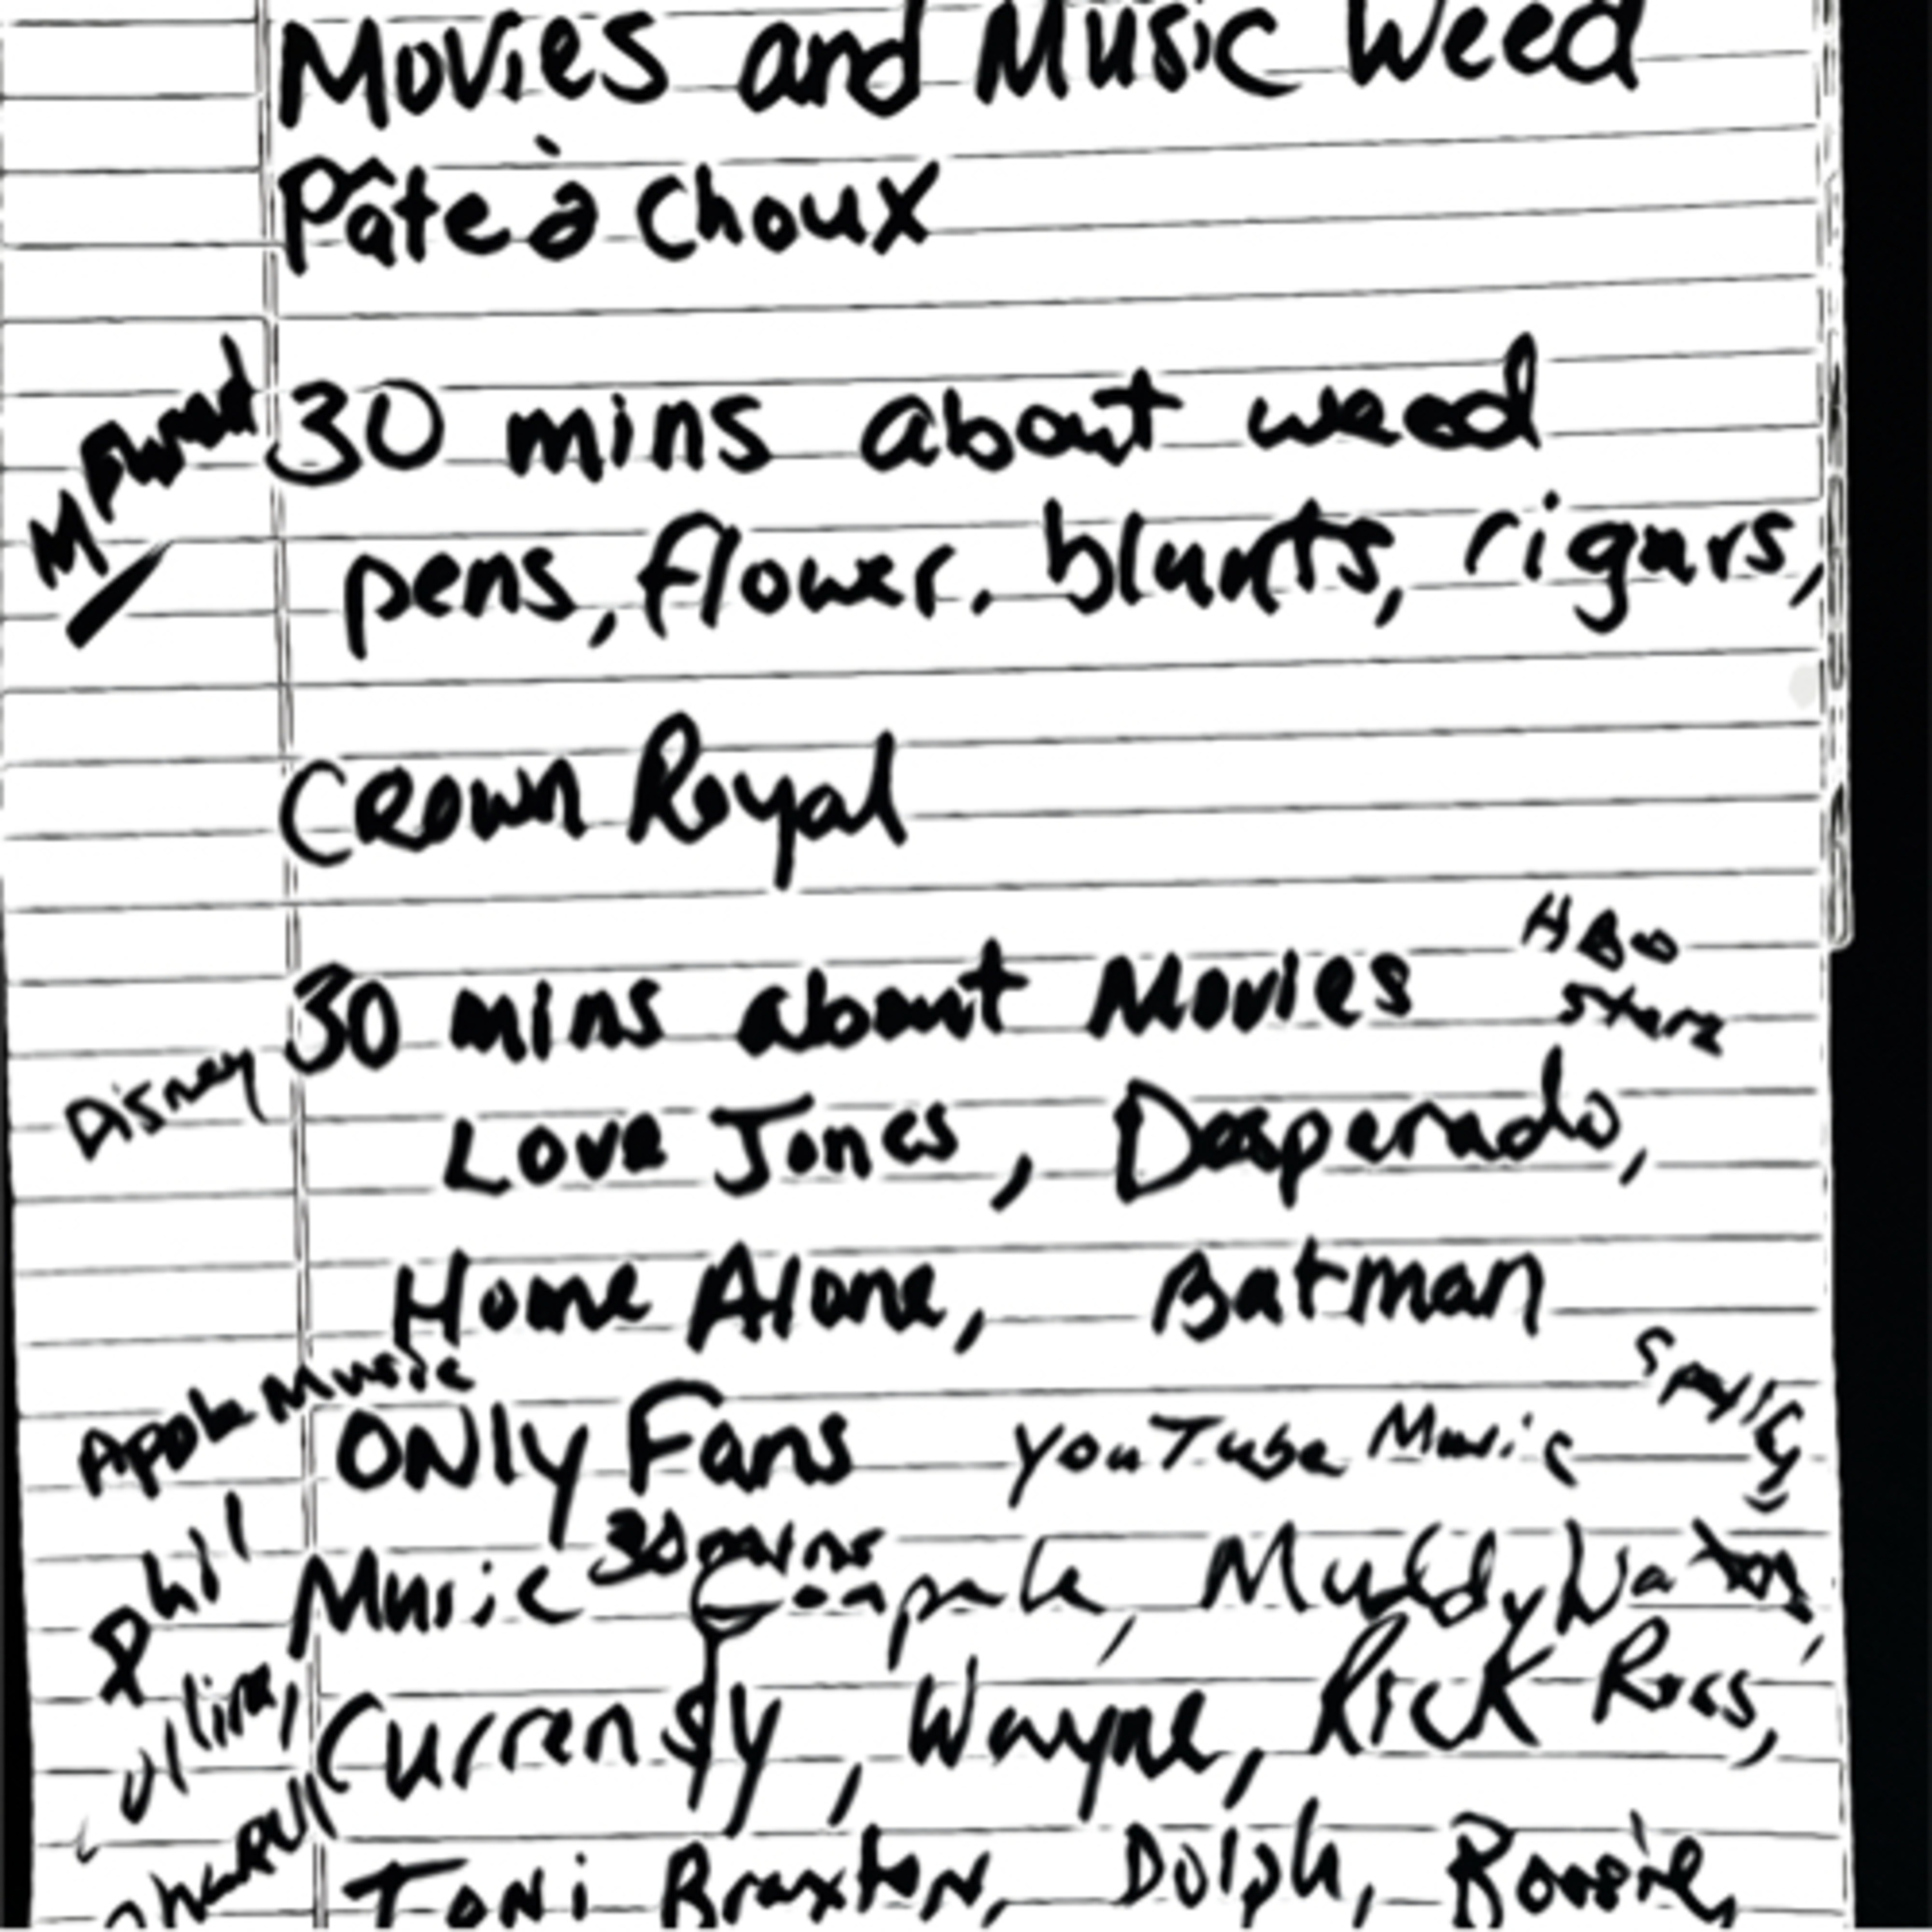 Movies and Music Weed
Pâte à Choux
30 mins about weed
pens, flower, blunts, cigars,
Crown Royal
HBO
30 mins about Movies
Starz
Disney
Love Jones, Desperado,
Home Alone, Batman
Apple Music
Only Fans YouTube Music
Music 30 mins Muddy Waters,
Phil
Curren$y, Wayne, Rick Ross,
Toni Braxton, Dolph, Boosie,